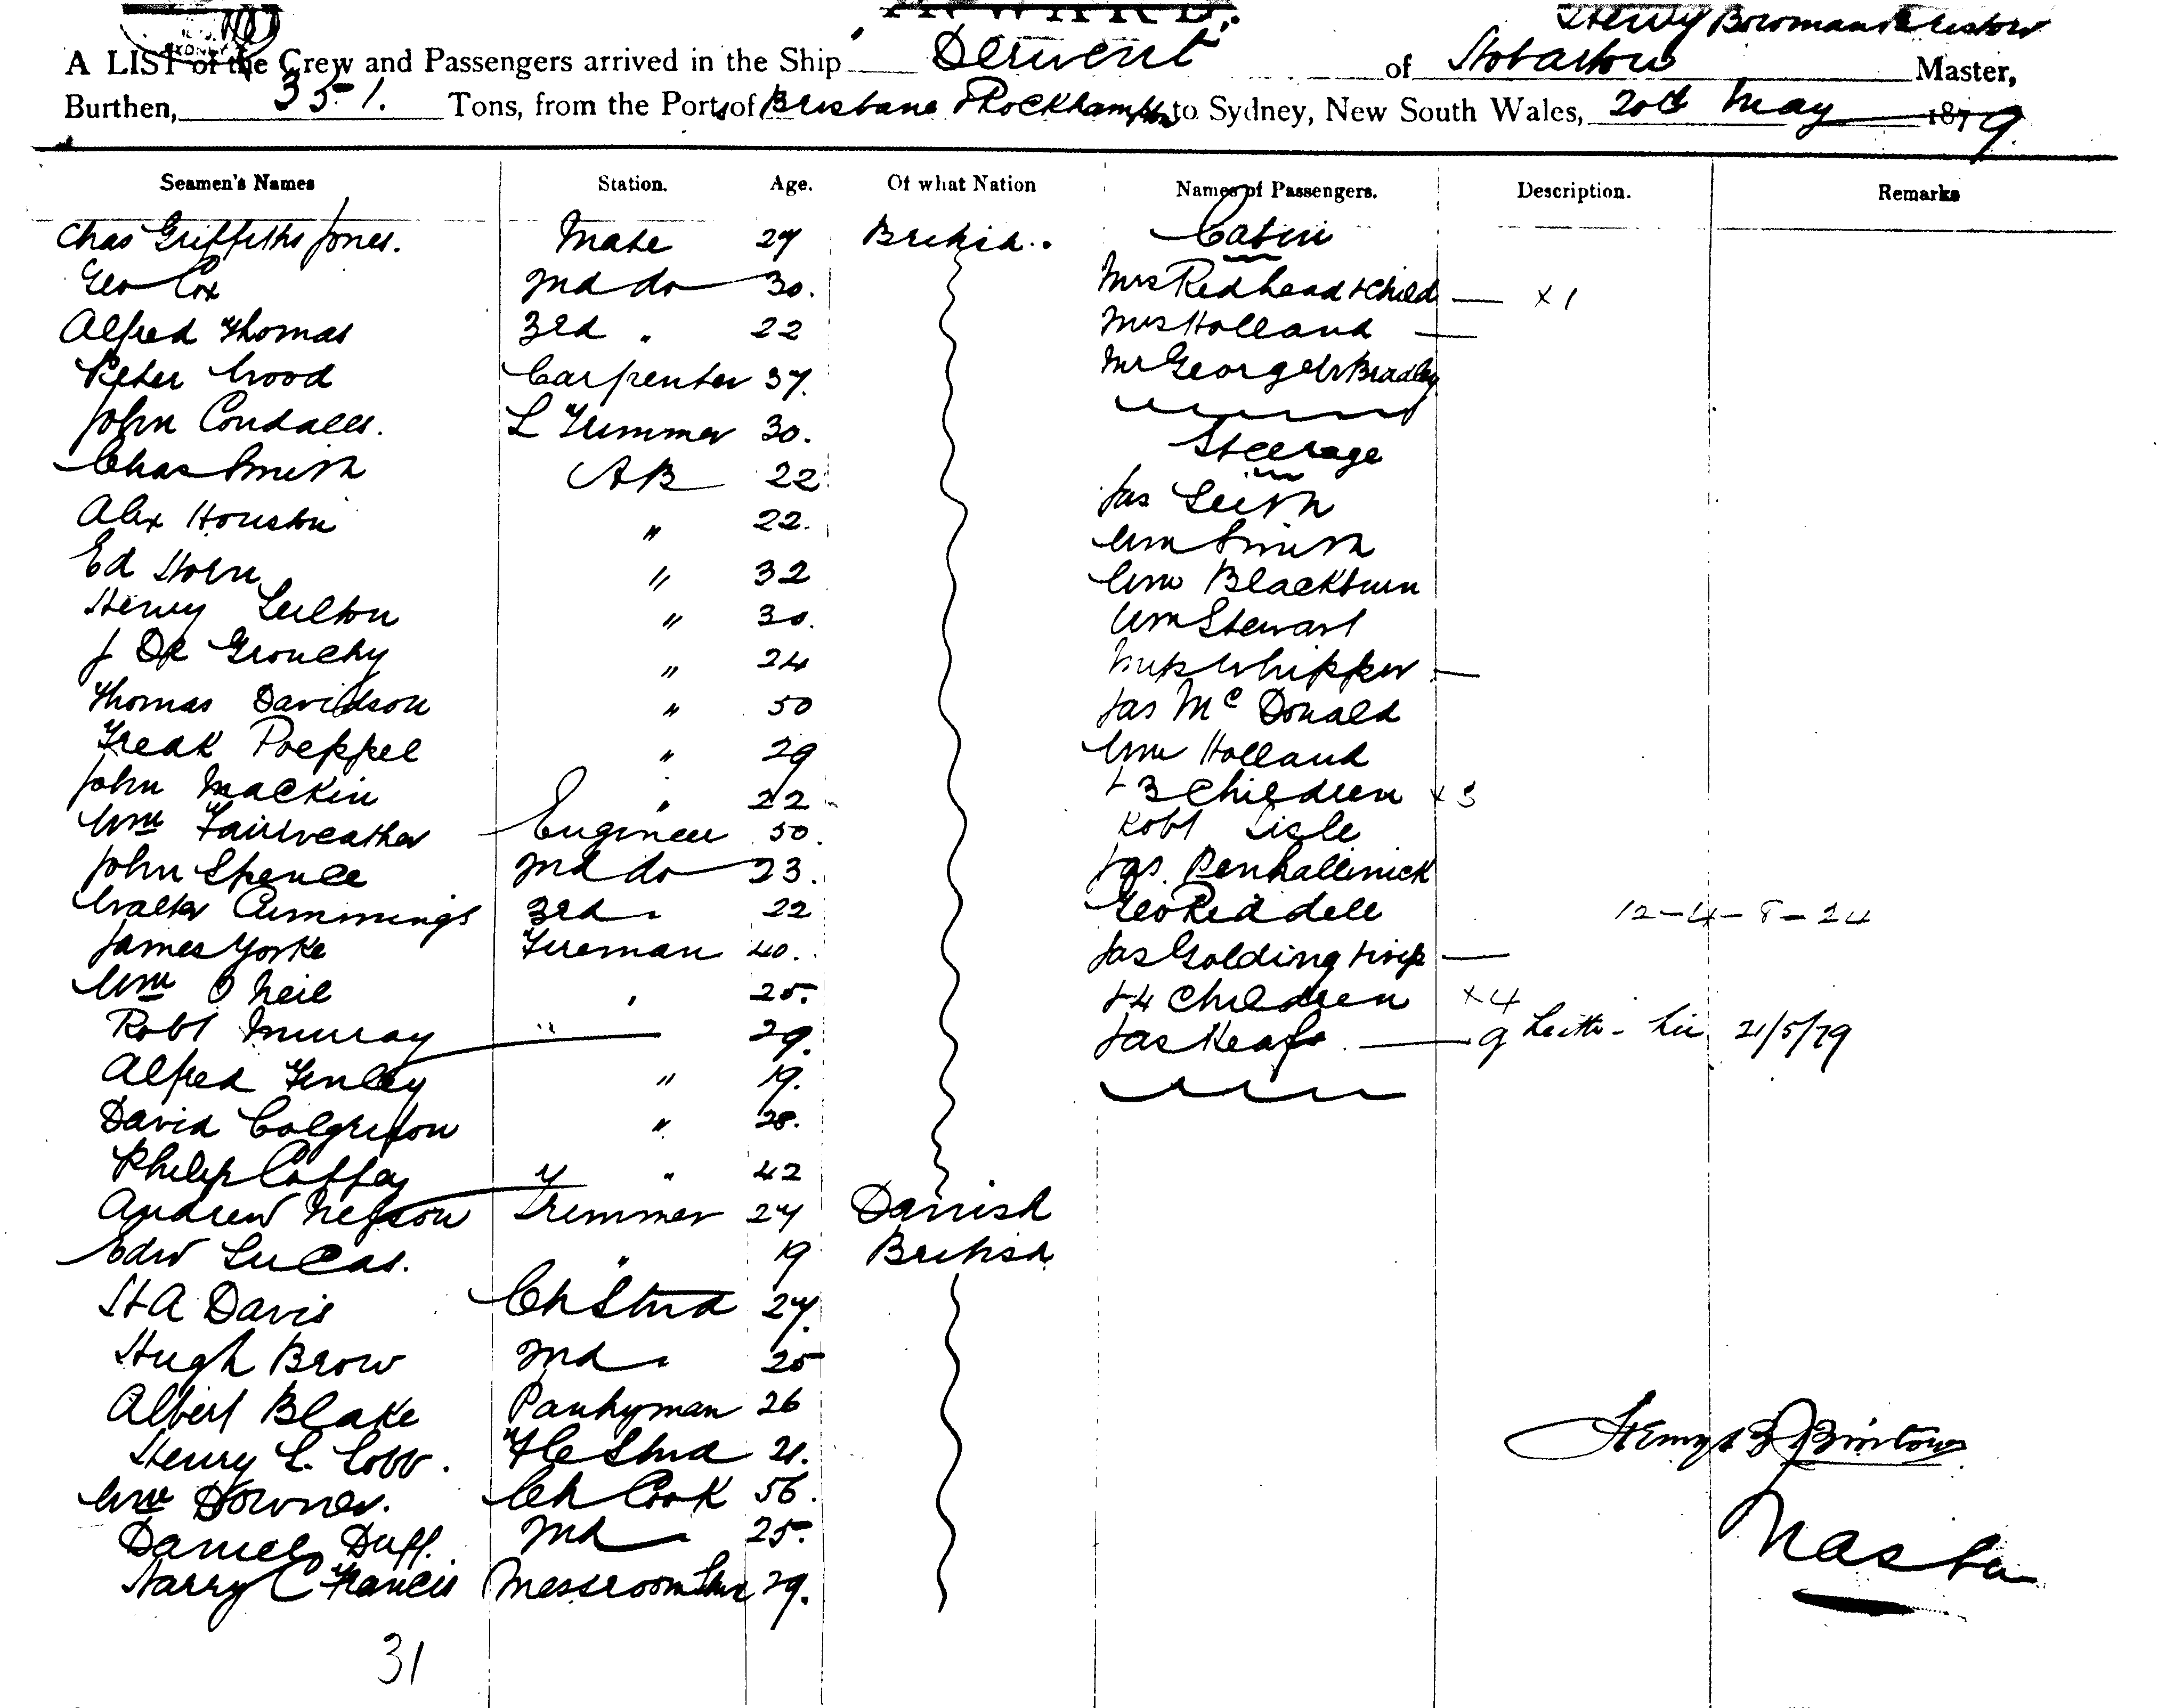 INWARD.
Henry Bowman Bristow
A LIST of the Crew and Passengers arrived in the Ship Derwent of Hobarton Master,
Burthen, 351. Tons, from the Ports of Brisbane & Rockhampton to Sydney, New South Wales, 20th May 1879.
Seamen's Names Station. Age. Of what Nation Names of Passengers. Description. Remarks
Chas Griffiths Jones. Mate 27 British. Cabin
Geo Cox 2nd do 30. Mrs Redhead & Child x 1
Alfred Thomas 3rd " 22 Mrs Holland
Peter Wood Carpenter 37. Mr George W Bradley
John Condalls. L Trimmer 30. Steerage
Chas Smith AB 22 Jas Leith
Alex Houston " 22. Wm Smith
Ed Horn " 32 Wm Blackburn
Henry " 30. Wm Stewart
J De Grouchy " 24 Mrs Whipper
Thomas Davidson " 50 Jas McDonald
Fredk Poeppel " 29 Wm Holland
John Mackin " 22 & 3 Children x 3
Wm Fairweather Engineer 50. Robt Lisle
John Spence 2nd do 23. Jas. Penhallinick
Walter Cummings 3rd " 22 Geo Riddell 12-4-8-24
James Yorke Fireman 40. Jas Golding & wife
Wm O Neil " 25. & 4 Children x 4
Robt Murray " 29. Jas Keafe 21/5/79
Alfred Finley " 19.
David Colgrifon " 28.
Philip Coffey " 42
Andrew Nelson Trimmer 27 Danish
Edw Lucas. " 19 British
H A Davis Ch Stwd 27.
Hugh Brow 2nd " 25
Albert Blake Pantryman 26
Henry L. Lobb. F C Stwd 21.
Wm Downes. Ch Cook 56.
Daniel Duff. 2nd " 25.
Harry C Francis Messroom Stwd 29.
Henry B Bristow
Master
31